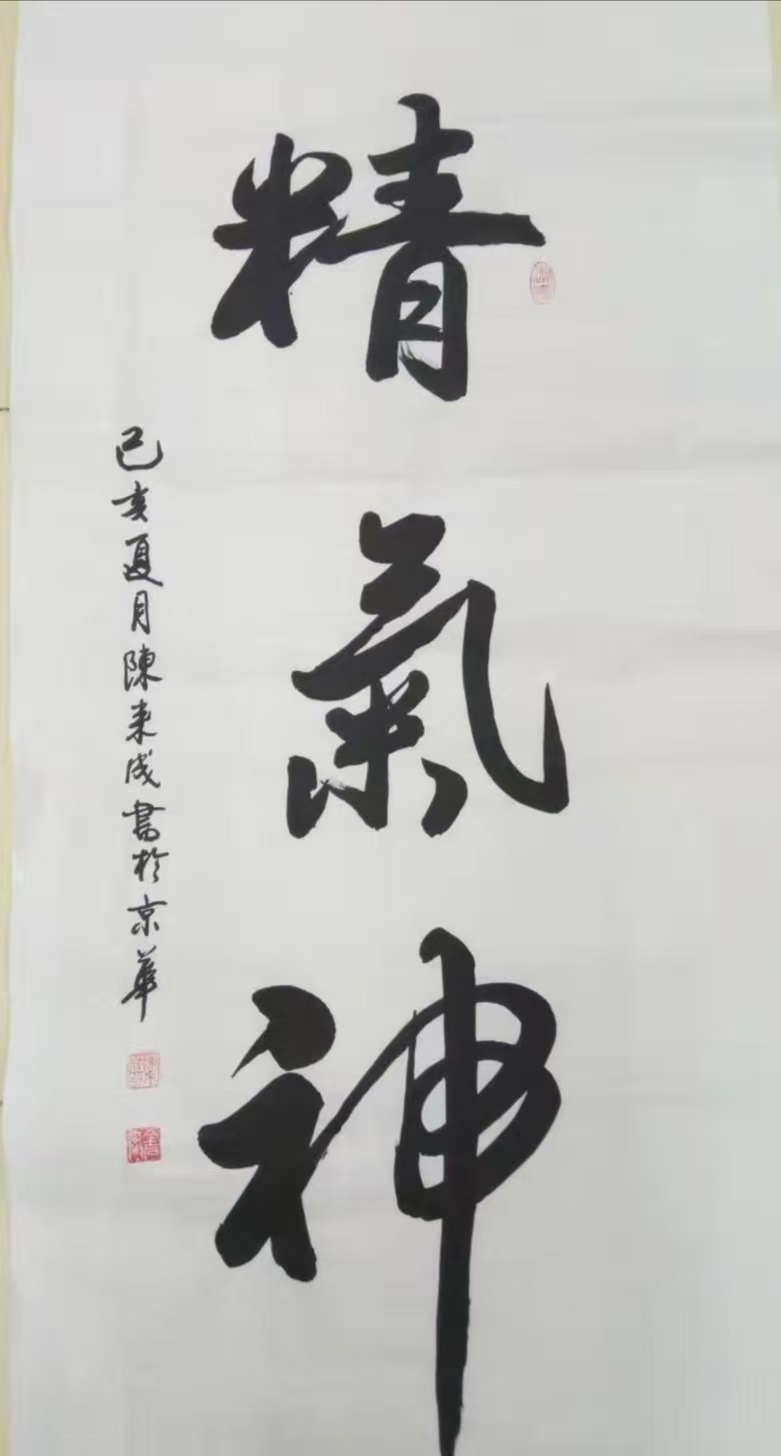 精氣神
己亥夏月陳来成書於京華